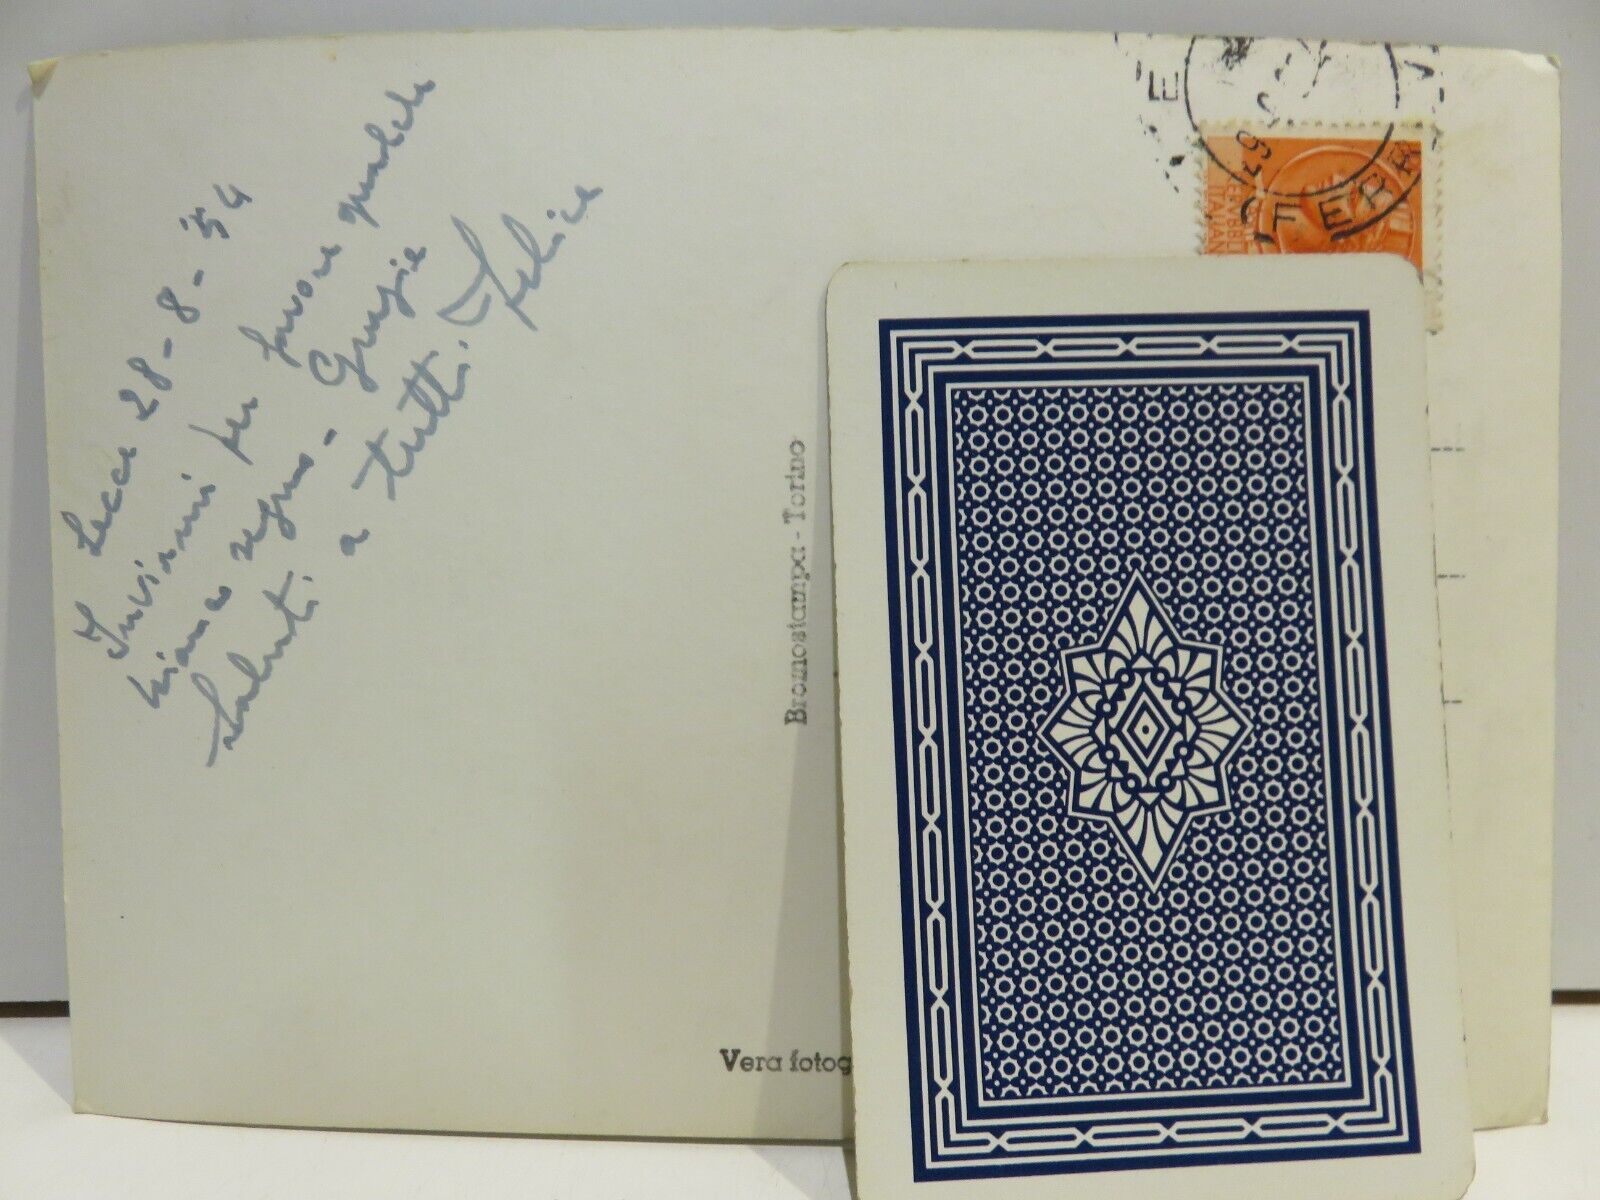 Lecce 28-8-54
Inviami per favore qualche
mano segno - Grazie
Saluti a tutti. Felice
Bromostampa - Torino
Vera fotog
ITALIAN
FERR